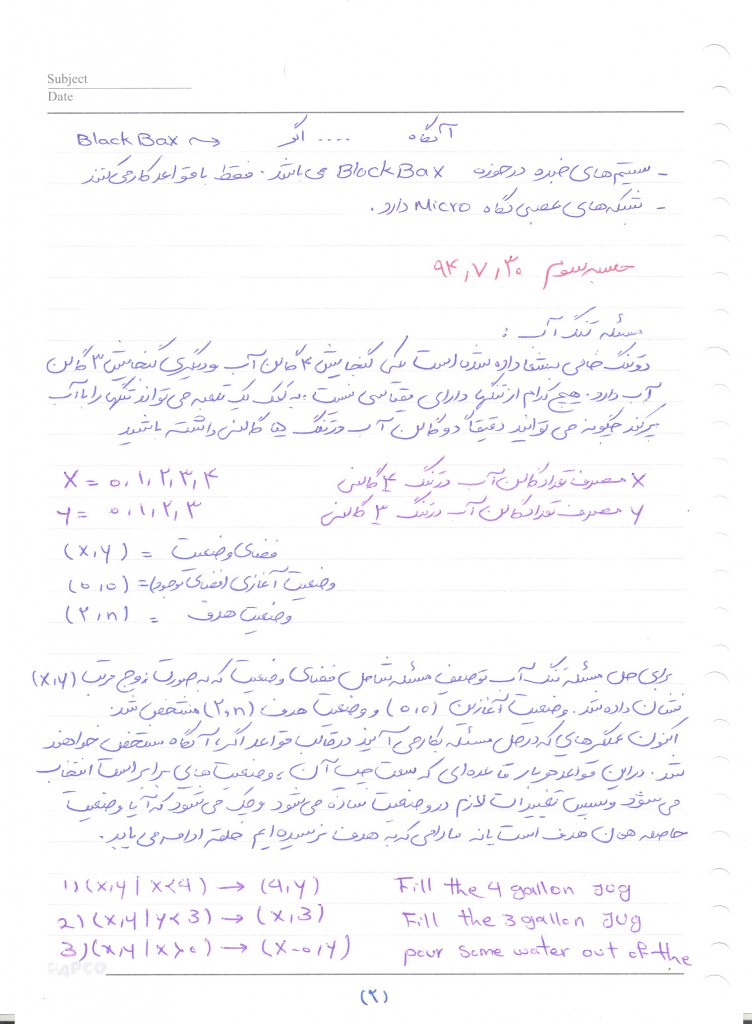 Subject
Date
آنگاه .... اگر ⇝ Black Bax
- سیستم‌های خبره در حوزه Black Bax می باشد. فقط با قواعد کار می کنند
- شبکه‌های عصبی نگاه Micro دارد.
جلسه سوم ۹۴,۷,۳۰
مسئله تنگ آب :
دو تنگ خالی به شما داده شده است یکی گنجایش ۴ گالن آب و دیگری گنجایش ۳ گالن
آب دارد. هیچ کدام از تنگها دارای مقیاسی نیست. به کمک یک تلمبه می تواند تنگها را با آب
پر کند چگونه می توانید دقیقاً دو گالن آب در تنگ ۴ گالنی داشته باشید
X معرف تعداد گالن آب در تنگ ۴ گالنی X = ۰,۱,۲,۳,۴
Y معرف تعداد گالن آب در تنگ ۳ گالنی Y = ۰,۱,۲,۳
فضای وضعیت = (x,y)
وضعیت آغازی (فضای موجود) = (۰,۰)
وضعیت هدف = (۲,n)
برای حل مسئله تنگ آب توصیف مسئله شامل فضای وضعیت که به صورت زوج مرتب (x,y)
نشان داده شد. وضعیت آغازین (۰,۰) و وضعیت هدف (۲,n) مشخص شد.
اکنون عملگرهایی که در حل مسئله بکار می آیند در قالب قواعد اگر، آنگاه مشخص خواهند
شد. در این قواعد هر بار قاعده ای که سمت چپ آن با وضعیت های برابر است انتخاب
می شود و سپس تغییرات لازم در وضعیت ساخته می شود و چک می شود که آیا وضعیت
حاصله همان هدف است یا نه مادامی که به هدف نرسیده ایم حلقه ادامه می یابد.
1) (x,y | x<4) → (4,y) Fill the 4 gallon Jug
2) (x,y | y<3) → (x,3) Fill the 3 gallon Jug
3) (x,y | x>0) → (x-d,y) pour some water out of the
PAPCO
(۲)